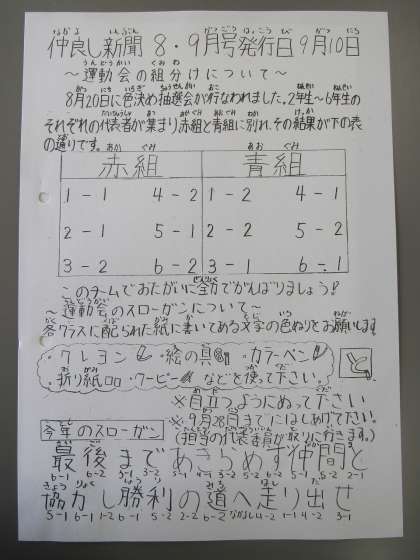 仲良し新聞 8・9月号発行日 9月10日
～運動会の組分けについて～
8月20日に色決め抽選会が行なわれました。2年生～6年生の
それぞれの代表者が集まり赤組と青組に別れ、その結果が下の表
の通りです。
赤組 青組
1-1 4-2 1-2 4-1
2-1 5-1 2-2 5-2
3-2 6-2 3-1 6-1
このチームでおたがいに全力でがんばりましょう!
～運動会のスローガンについて～
各クラスに配られた紙に書いてある文字の色ぬりをお願いします
・クレヨン ・絵の具 ・カラーペン
・折り紙 ・ワーピー などを使って下さい。
と
※目立つようにぬって下さい
※9月28日までにはしあげて下さい。
(担当の代表委員が取りに行きます。)
今年のスローガン
最後まであきらめず仲間と
協力し勝利の道へ走り出せ